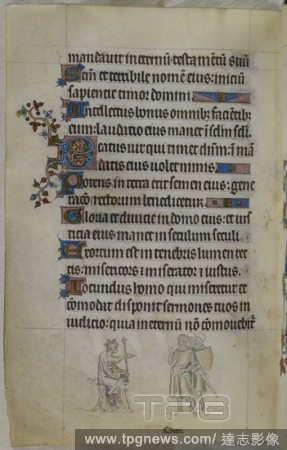 mandavit in eternū testamētū suū
Sc̄m et terribile nomē eius: iniciū
sapiencie timor domini
Intellectus bonus omnib; facientib;
eum: laudatio eius manet ī sc̄lm sc̄li
Beatus vir qui timet dūm: ī man
datis eius volet nimis
Potens in terra erit semen eius: gene
racō rectorum benedicetur
Gloria et divicie in domo eius: et ius
ticia eius manet in seculum seculi
Exortum est in tenebris lumen rec
tis: misericors ⁊ miserator ⁊ iustus
Iocundus homo qui miseretur et
cōmodat disponit sermones suos in
iudicio: quia in eternū nō cōmovebit᷑
TPG
www.tpgnews.com/ 達志影像